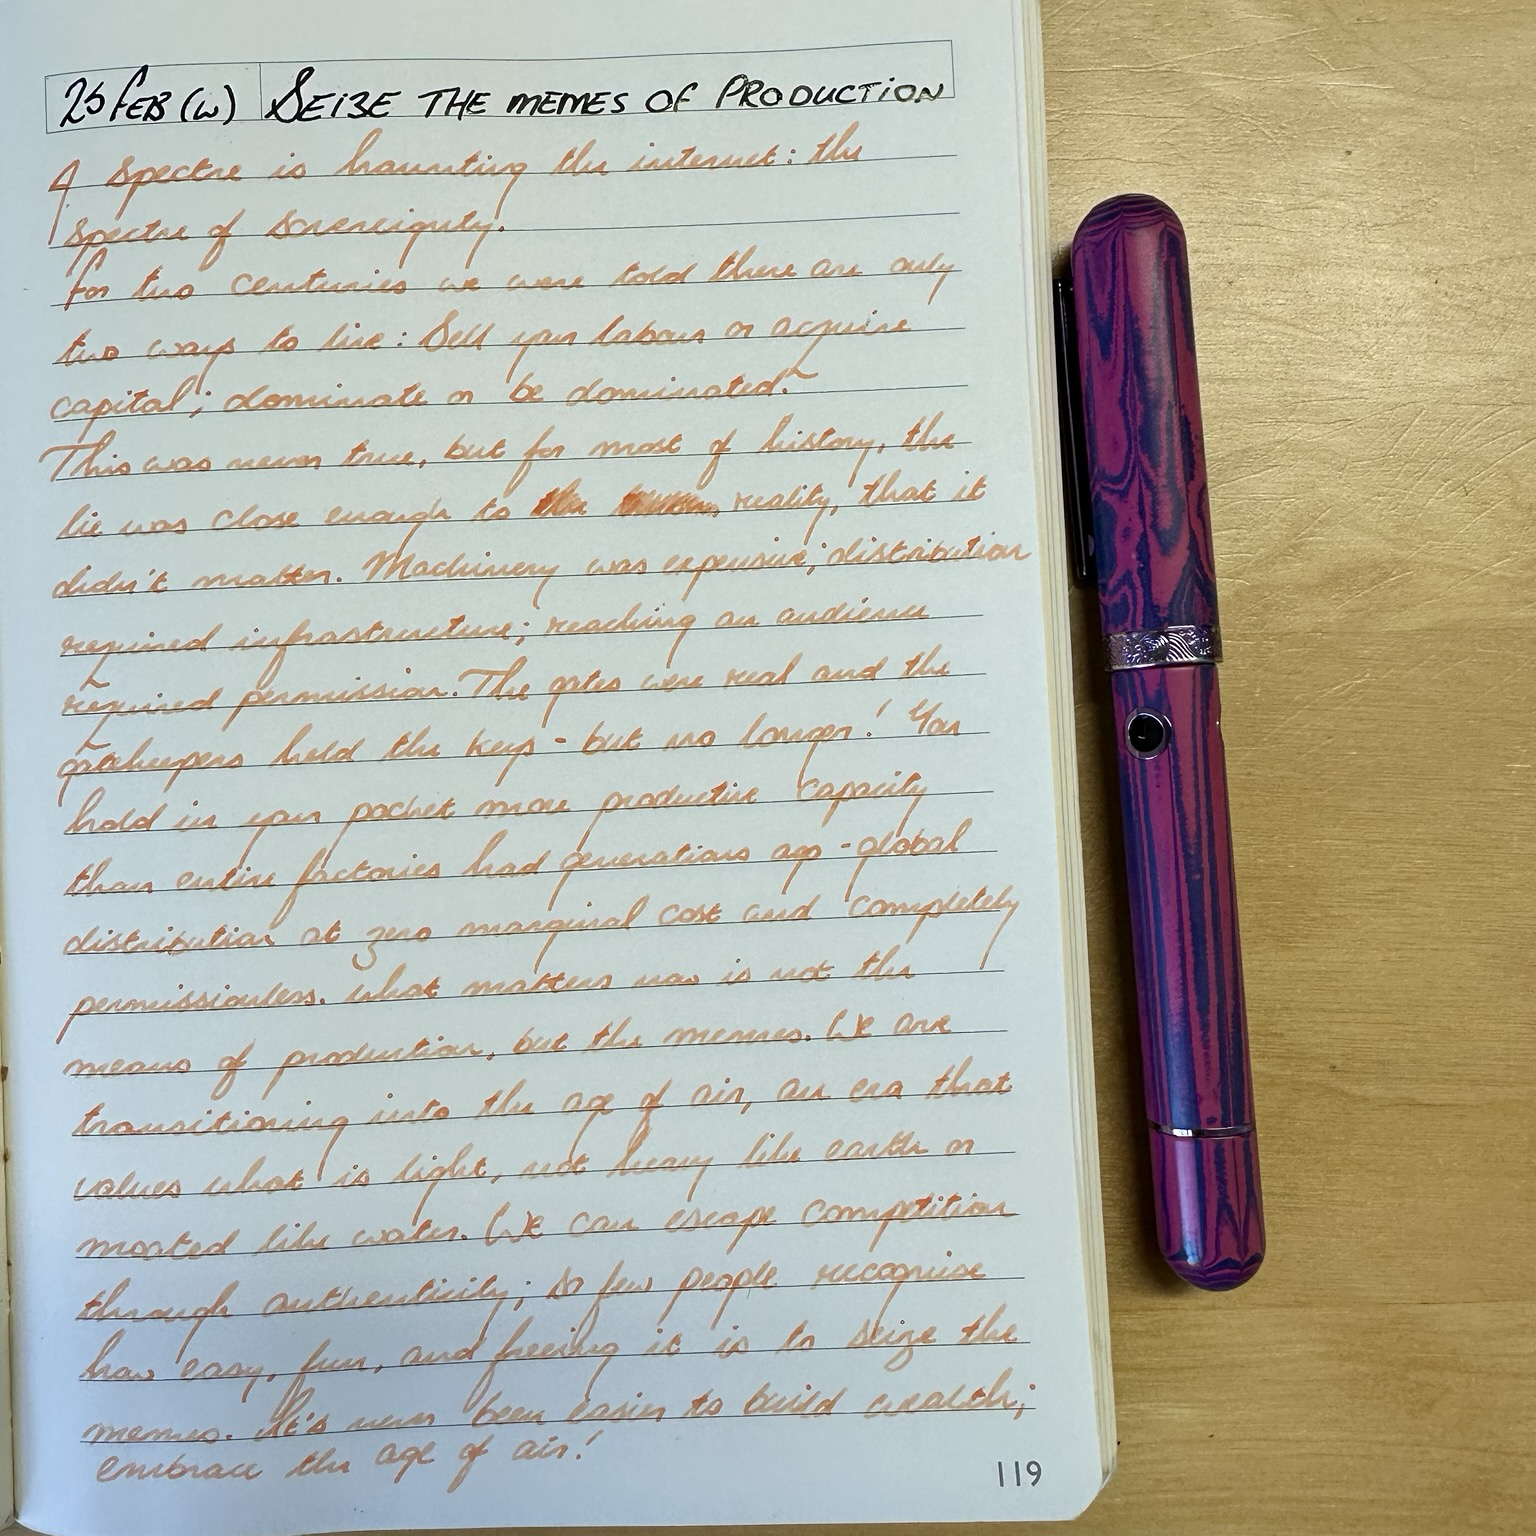 25 FEB (W) SEIZE THE MEMES OF PRODUCTION
A spectre is haunting the internet: the
spectre of sovereignty.
For two centuries we were told there are only
two ways to live: Sell your labour or acquire
capital; dominate or be dominated.
This was never true, but for most of history, the
lie was close enough to the reality, that it
didn't matter. Machinery was expensive; distribution
required infrastructure; reaching an audience
required permission. The gates were real and the
gatekeepers held the keys - but no longer! You
hold in your pocket more productive capacity
than entire factories had generations ago - global
distribution at zero marginal cost and completely
permissionless. What matters now is not the
means of production, but the memes. We are
transitioning into the age of air, an era that
values what is light, not heavy like earth or
moated like water. We can escape competition
through authenticity; so few people recognise
how easy, fun, and freeing it is to seize the
memes. It's never been easier to build wealth;
embrace the age of air!
119